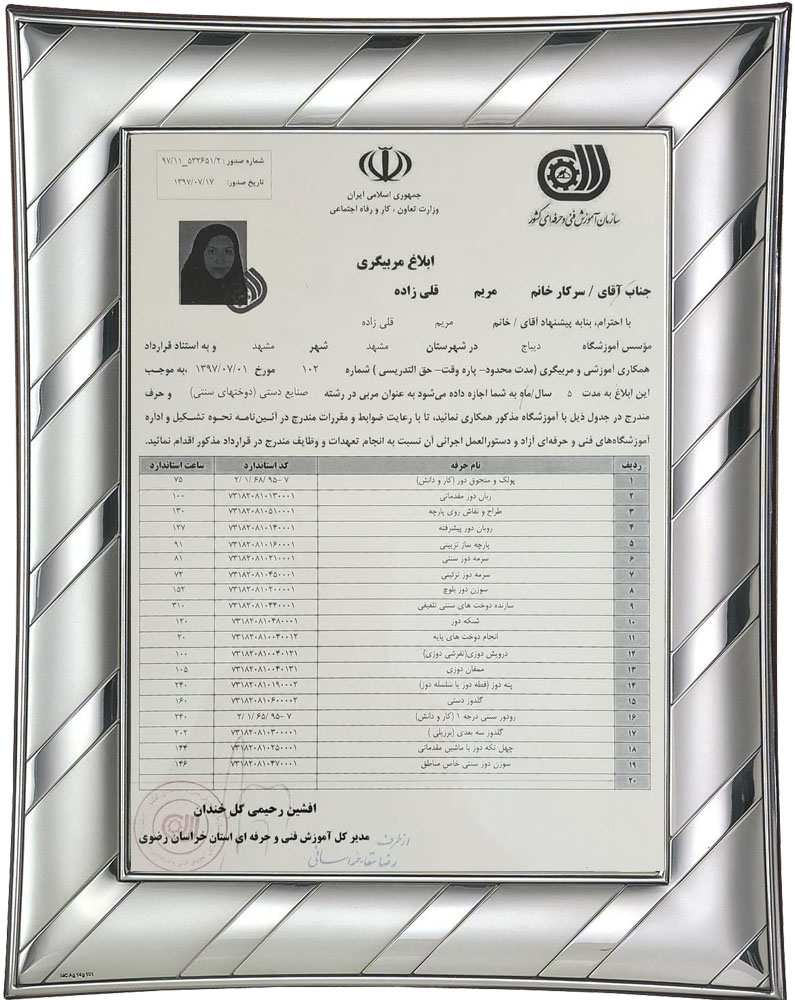 شماره صدور: ۹۷/۱۱_۵۳۲۶۵۱/۲
تاریخ صدور: ۱۳۹۷/۰۷/۱۷
جمهوری اسلامی ایران
وزارت تعاون ، کار و رفاه اجتماعی
سازمان آموزش فنی و حرفه ای کشور
ابلاغ مربیگری
جناب آقای / سرکار خانم مریم قلی زاده
با احترام، بنابه پیشنهاد آقای / خانم مریم قلی زاده
مؤسس آموزشگاه دیباج در شهرستان مشهد شهر مشهد و به استناد قرارداد
همکاری آموزشی و مربیگری (مدت محدود- پاره وقت- حق التدریسی ) شماره ۱۰۲ مورخ ۱۳۹۷/۰۷/۰۱ ،به موجب
این ابلاغ به مدت ۵ سال/ماه به شما اجازه داده می‌شود به عنوان مربی در رشته صنایع دستی (دوختهای سنتی) و حرف
مندرج در جدول ذیل با آموزشگاه مذکور همکاری نمائید، تا با رعایت ضوابط و مقررات مندرج در آئین‌نامه نحوه تشکیل و اداره
آموزشگاه‌های فنی و حرفه‌ای آزاد و دستورالعمل اجرائی آن نسبت به انجام تعهدات و وظایف مندرج در قرارداد مذکور اقدام نمائید.
ردیف نام حرفه کد استاندارد ساعت استاندارد
۱ پولک و منجوق دوز (کار و دانش) ۷-۹۵ /۶۸ /۱ /۲ ۷۵
۲ ربان دوز مقدماتی ۷۳۱۸۲۰۸۱۰۱۳۰۰۰۱ ۱۰۰
۳ طراح و نقاش روی پارچه ۷۳۱۸۲۰۸۱۰۵۱۰۰۰۱ ۱۳۰
۴ روبان دوز پیشرفته ۷۳۱۸۲۰۸۱۰۱۴۰۰۰۱ ۱۲۷
۵ پارچه ساز تزیینی ۷۳۱۸۲۰۸۱۰۱۶۰۰۰۱ ۹۱
۶ سرمه دوز سنتی ۷۳۱۸۲۰۸۱۰۲۱۰۰۰۱ ۸۱
۷ سرمه دوز تزئینی ۷۳۱۸۲۰۸۱۰۴۵۰۰۰۱ ۷۲
۸ سوزن دوز بلوچ ۷۳۱۸۲۰۸۱۰۲۰۰۰۰۱ ۱۵۲
۹ سازنده دوخت های سنتی تلفیقی ۷۳۱۸۲۰۸۱۰۴۴۰۰۰۱ ۳۱۰
۱۰ شبکه دوز ۷۳۱۸۲۰۸۱۰۴۸۰۰۰۱ ۱۲۰
۱۱ انجام دوخت های پایه ۷۳۱۸۲۰۸۱۰۰۴۰۰۱۲ ۲۰
۱۲ درویش دوزی(تفرشی دوزی) ۷۳۱۸۲۰۸۱۰۰۴۰۱۲۱ ۱۰۰
۱۳ ممقان دوزی ۷۳۱۸۲۰۸۱۰۰۴۰۱۳۱ ۱۰۵
۱۴ پته دوز (قطه دوز یا سلسله دوز) ۷۳۱۸۲۰۸۱۰۱۹۰۰۰۲ ۲۴۰
۱۵ گلدوز دستی ۷۳۱۸۲۰۸۱۰۶۰۰۰۰۲ ۱۶۰
۱۶ رودوز سنتی درجه ۱ (کار و دانش) ۷-۹۵ /۶۵ /۱ /۲ ۲۴۰
۱۷ گلدوز سه بعدی (برزیلی ) ۷۳۱۸۲۰۸۱۰۳۰۰۰۰۱ ۲۰۲
۱۸ چهل تکه دوز با ماشین مقدماتی ۷۳۱۸۲۰۸۱۰۲۵۰۰۰۱ ۱۴۴
۱۹ سوزن دوز سنتی خاص مناطق ۷۳۱۸۲۰۸۱۰۴۷۰۰۰۱ ۱۴۶
۲۰
افشین رحیمی گل خندان
مدیر کل آموزش فنی و حرفه ای استان خراسان رضوی
از طرف